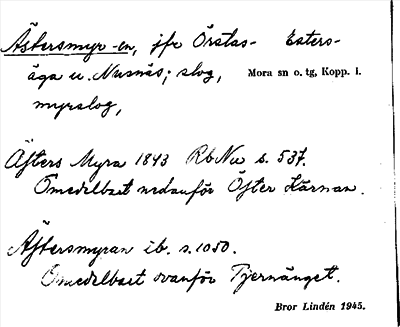 Ästersmyr -en, jfr Örstas- Esters-
äga u. Nusnäs; slog, Mora sn o. tg, Kopp. l.
myrslog,
Äfters Myra 1843 RbNu s. 537.
Omedelbart nedanför Öfter Kärnan.
Äftersmyran ib. s. 1050.
Omedelbart ovanför Tjernänget.
Bror Lindén 1945.